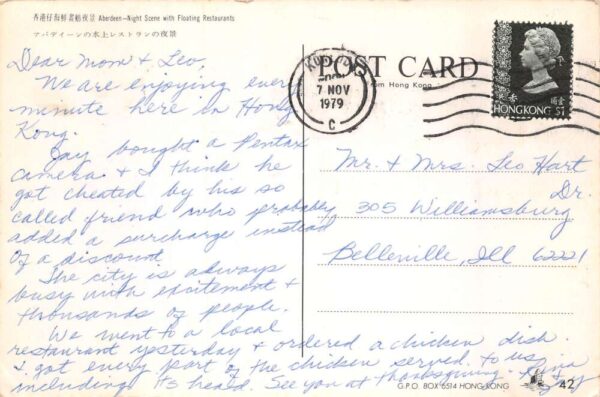 香港仔海鮮畫舫夜景 Aberdeen–Night Scene with Floating Restaurants
アバディーンの水上レストランの夜景
Dear Mom & Leo,
We are enjoying every
minute here in Hong
Kong.
Jay bought a Pentax
camera & I think he
got cheated by his so
called friend who probably
added a surcharge instead
of a discount.
The city is always
busy with excitement &
thousands of people.
We went to a local
restaurant yesterday & ordered a chicken dish.
& got every part of the chicken served to us
including its head. See you at thanksgiving.
POST CARD
from Hong Kong
7 NOV
1979
C
香港
HONG KONG $1
Mr. & Mrs. Leo Hart
305 Williamsburg Dr.
Belleville, Ill 62221
G.P.O. BOX 6514 HONG KONG
42